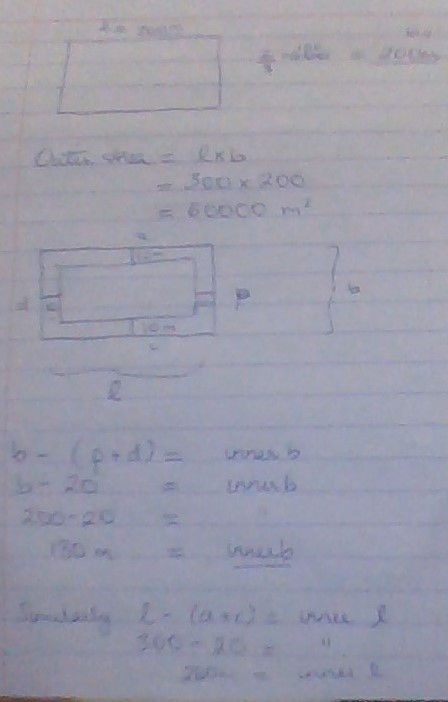 = 200m
Outer area = l x b
= 300 x 200
= 60000 m²
10m
p
b
10m
l
b - (p+d) = inner b
b - 20 = inner b
200-20 =
180 m = inner b
Similarly l - (a+c) = inner l
300 - 20 = "
280m = inner l